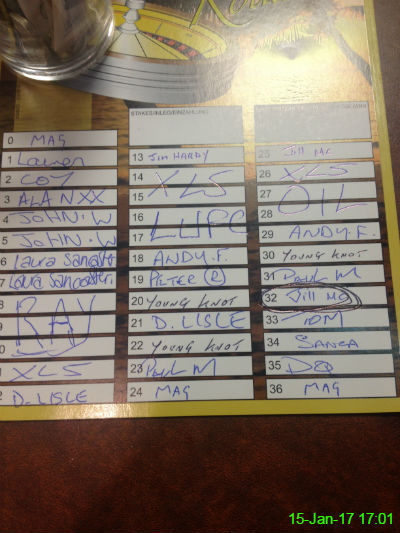 STAKES/INLEG/EINZAHLUNG
0 MAG
1 Lauren
2 COY
3 ALAN XX
4 JOHN.W
5 JOHN.W
6 Laura Sangster
7 Laura Sangster.
8
9 RAY
0
1 XLS
2 D. LISLE
13 JIM HARDY
14
15 XLS
16
17 LUPC
18 ANDY.F.
19 PIETER R
20 YOUNG KNOT
21 D. LISLE
22 YOUNG KNOT
23 Paul M
24 MAG
25 Jill Mc
26 XLS
27
28 OIL
29 ANDY.F.
30 YOUNG KNOT
31 Paul M
32 Jill Mc
33 TOM
34
35 DQ
36 MAG
15-Jan-17 17:01